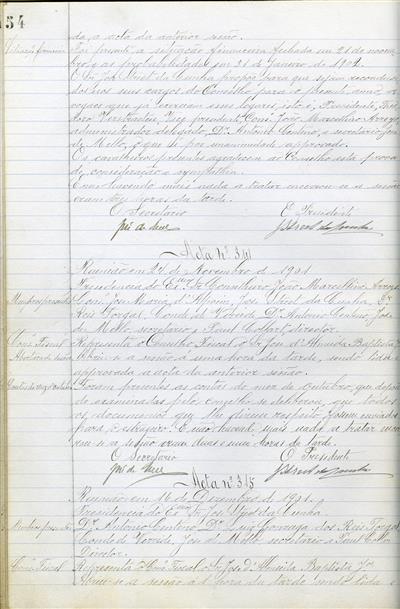 154
da a acta da anterior sessão.
Situação financeira Foi presente a situação financeira fechada em 21 de novem
bro, e as probabilidades em 31 de Janeiro de 1902.
O Sr. José Street da Cunha propoz para que sejam reconduzi
dos nos seus cargos do Conselho para o presente anno, os
vogaes que já exerciam esses logares, isto é, Presidente,
Vice presidente, Consº João Marcellino Arroyo
administrador delegado, Dr. Antonio Centeno, e secretario José
de Mello, o que foi por unanimidade approvado.
Os cavalheiros presentes agradecem ao Conselho esta prova
de consideração e sympathia.
E não havendo mais nada a tratar encerrou-se a sessão
eram tres horas da tarde.
O Secretario O Presidente
José de Mello J Street da Cunha
Acta nº 314
Reunião em 24 de Novembro de 1901
Presidencia do Exmo Conselheiro João Marcellino Arroyo
Membros presentes Consº José Maria d'Alpoim, José Street da Cunha, Dr
Reis Torgal, Conde de Verride, Dr. Antonio Centeno, José
de Mello, secretario, e Paul Collart, director.
Consº Fiscal Representa o Conselho Fiscal o Sr. José d'Almeida Baptista Jor
Abertura da sessão Abriu-se a sessão á uma hora da tarde, sendo lida e
approvada a acta da anterior sessão.
Contas do mez d'outubro Foram presentes as contas do mez de outubro, que depois
de examinadas pelo conselho se deliberou que todos
os documentos que lhe dizem respeito fossem enviados
para o estrangeiro. E não havendo mais nada a tratar encer
rou-se a sessão eram duas e meia horas da tarde.
O Secretario O Presidente
José de Mello J Street da Cunha
Acta nº 315
Reunião em 16 de Dezembro de 1901.
Presidencia do Exmo Sr. José Street da Cunha
Membros presentes Dr. Antonio Centeno, Dr. Luiz Gonzaga dos Reis Torgal,
Conde de Verride, José de Mello secretario e Paul Collart
Director.
Consº Fiscal Representa o Consº Fiscal o Sr. José d'Almeida Baptista Jor
Abriu-se a sessão á 1 hora da tarde sendo lida e